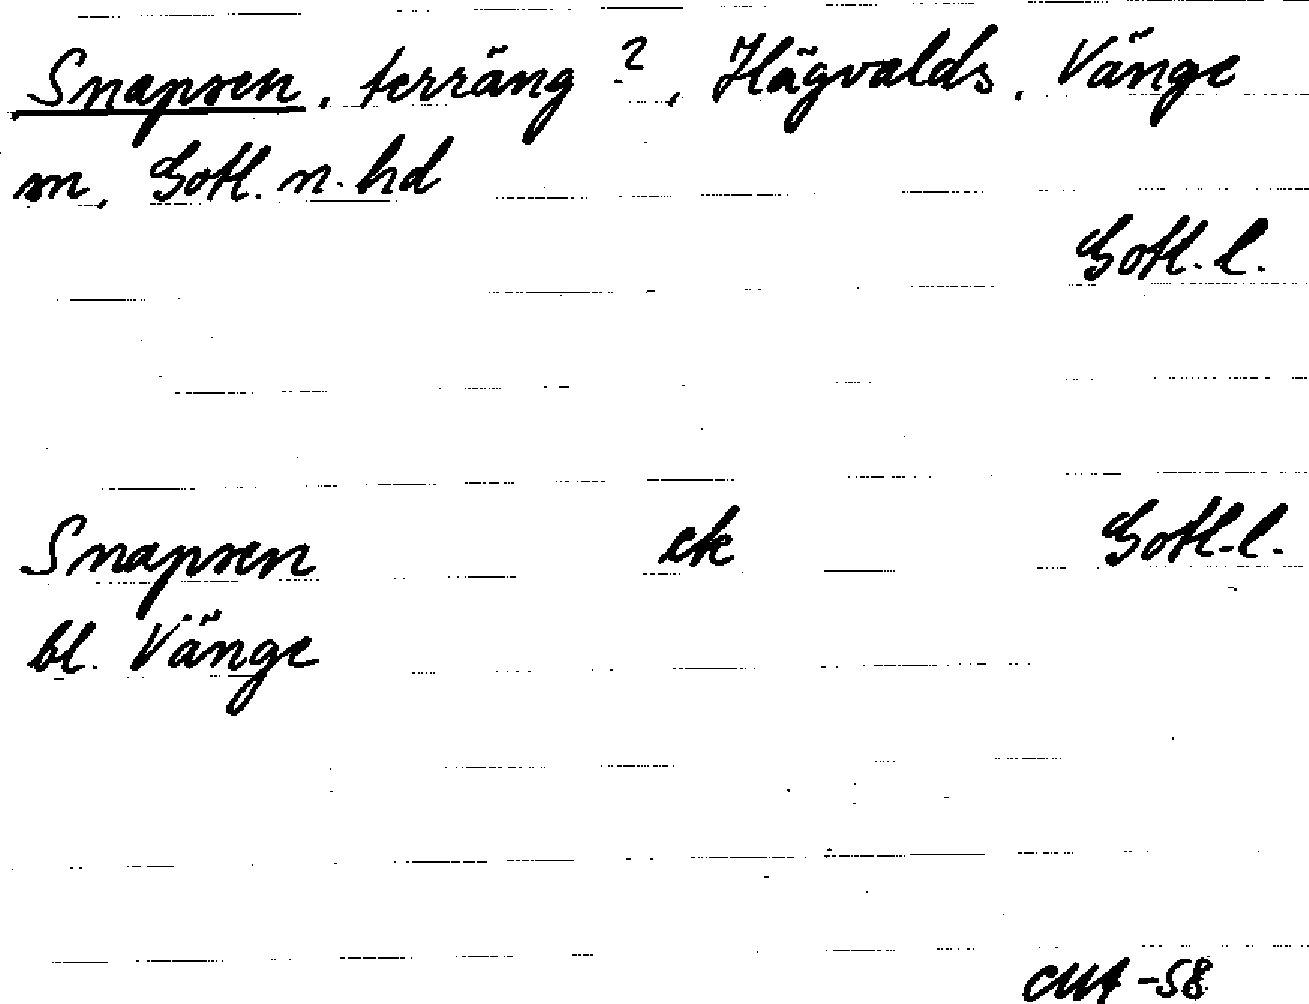 Snapsen, terräng?, Hägvalds, Vänge
sn, Gotl. n. hd
Gotl. l.
Snapsen ek Gotl. l.
bl. Vänge
CMA -58